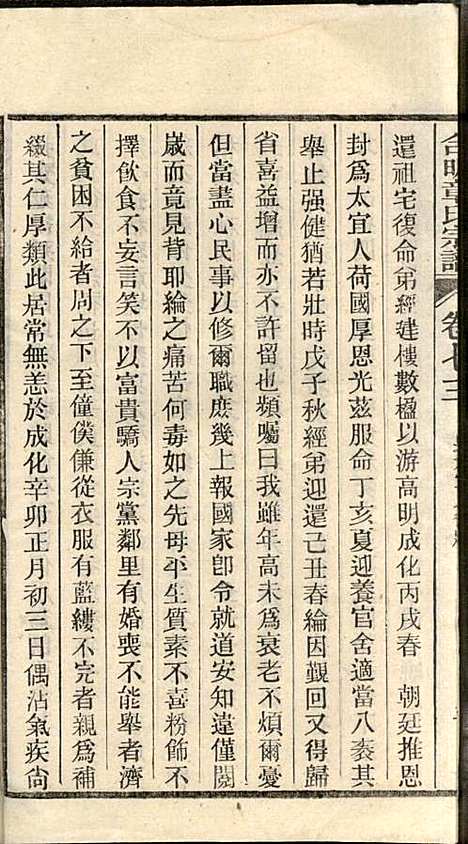 合明章氏宗譜 卷七三
還祖宅復命弟經建樓數楹以游高明成化丙戌春 朝廷推恩
封爲太宜人荷國厚恩光茲服命丁亥夏迎養官舍適當八袠其
舉止强健猶若壯時戊子秋經弟迎還己丑春綸因覲回又得歸
省喜益增而亦不許留也頻囑曰我雖年高未爲衰老不煩爾憂
但當盡心民事以修爾職庶幾上報國家卽令就道安知違僅閱
歲而竟見背耶綸之痛苦何毒如之先母平生質素不喜粉飾不
擇飲食不妄言笑不以富貴驕人宗黨鄰里有婚喪不能舉者濟
之貧困不給者周之下至僮僕傔從衣服有藍縷不完者親爲補
綴其仁厚類此居常無恙於成化辛卯正月初三日偶沾氣疾尙